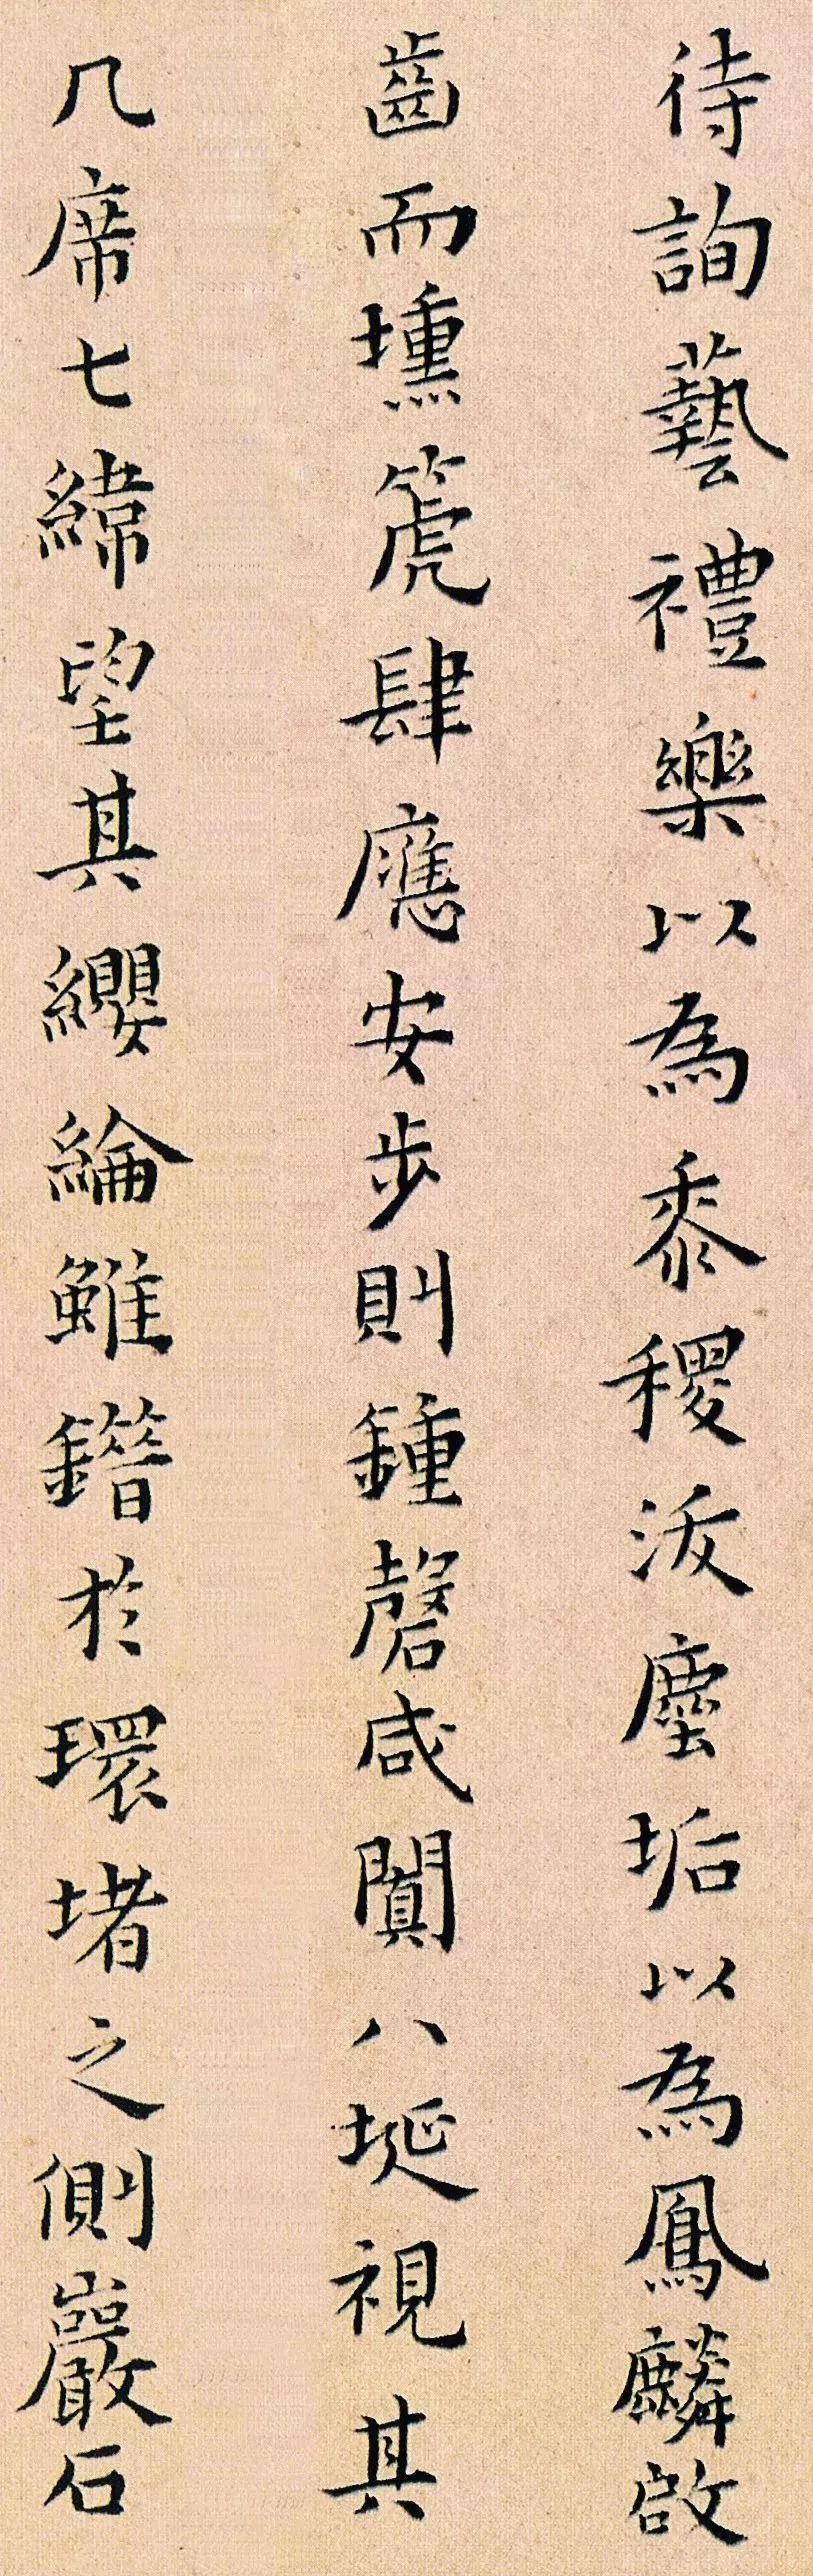 待詢藝禮樂以為黍稷泼塵垢以為鳳麟啟
齒而壎箎肆應安步則鍾磬咸闐八埏視其
几席七緯望其纓綸雖鐕於環堵之側巖石